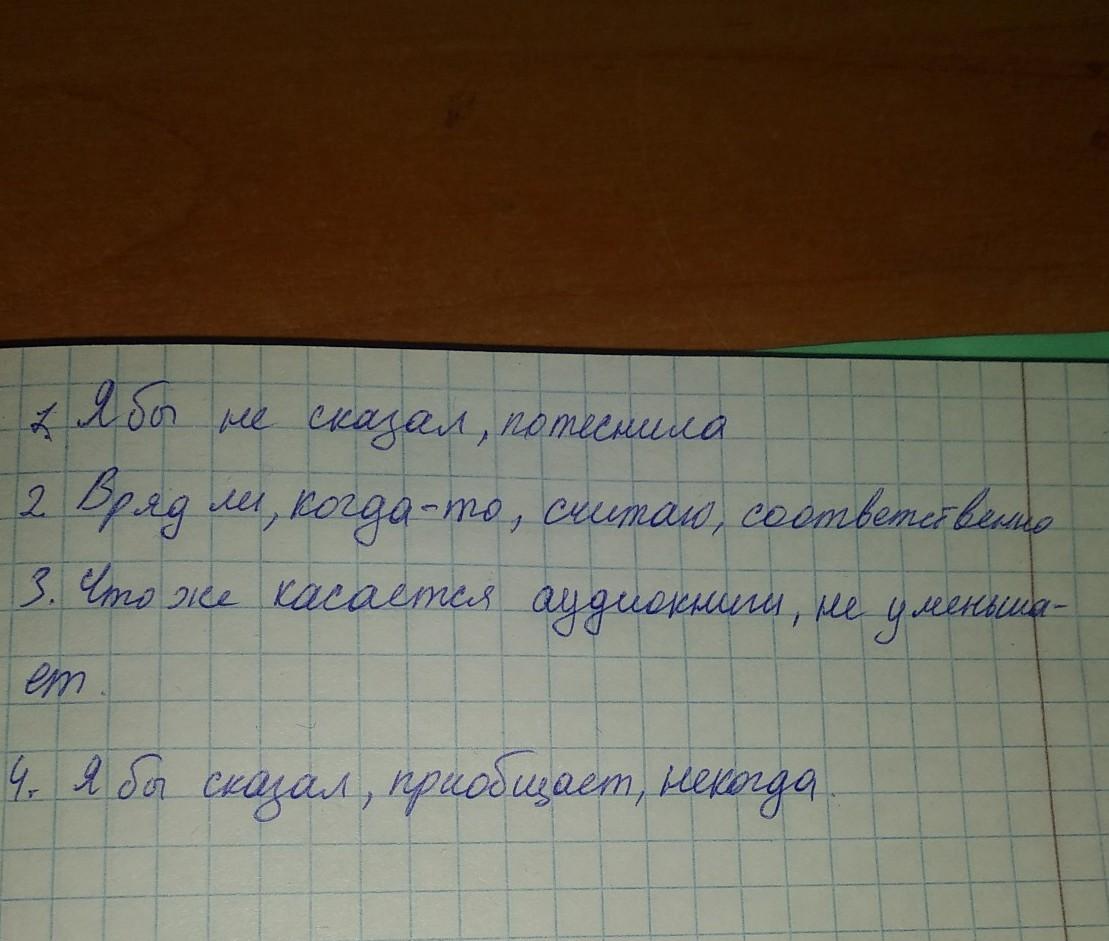 1. Я бы не сказал, потеснила
2. Вряд ли, когда-то, считаю, соответственно
3. Что же касается аудиокниги, не уменьша-
ет.
4. Я бы сказал, приобщает, некогда.